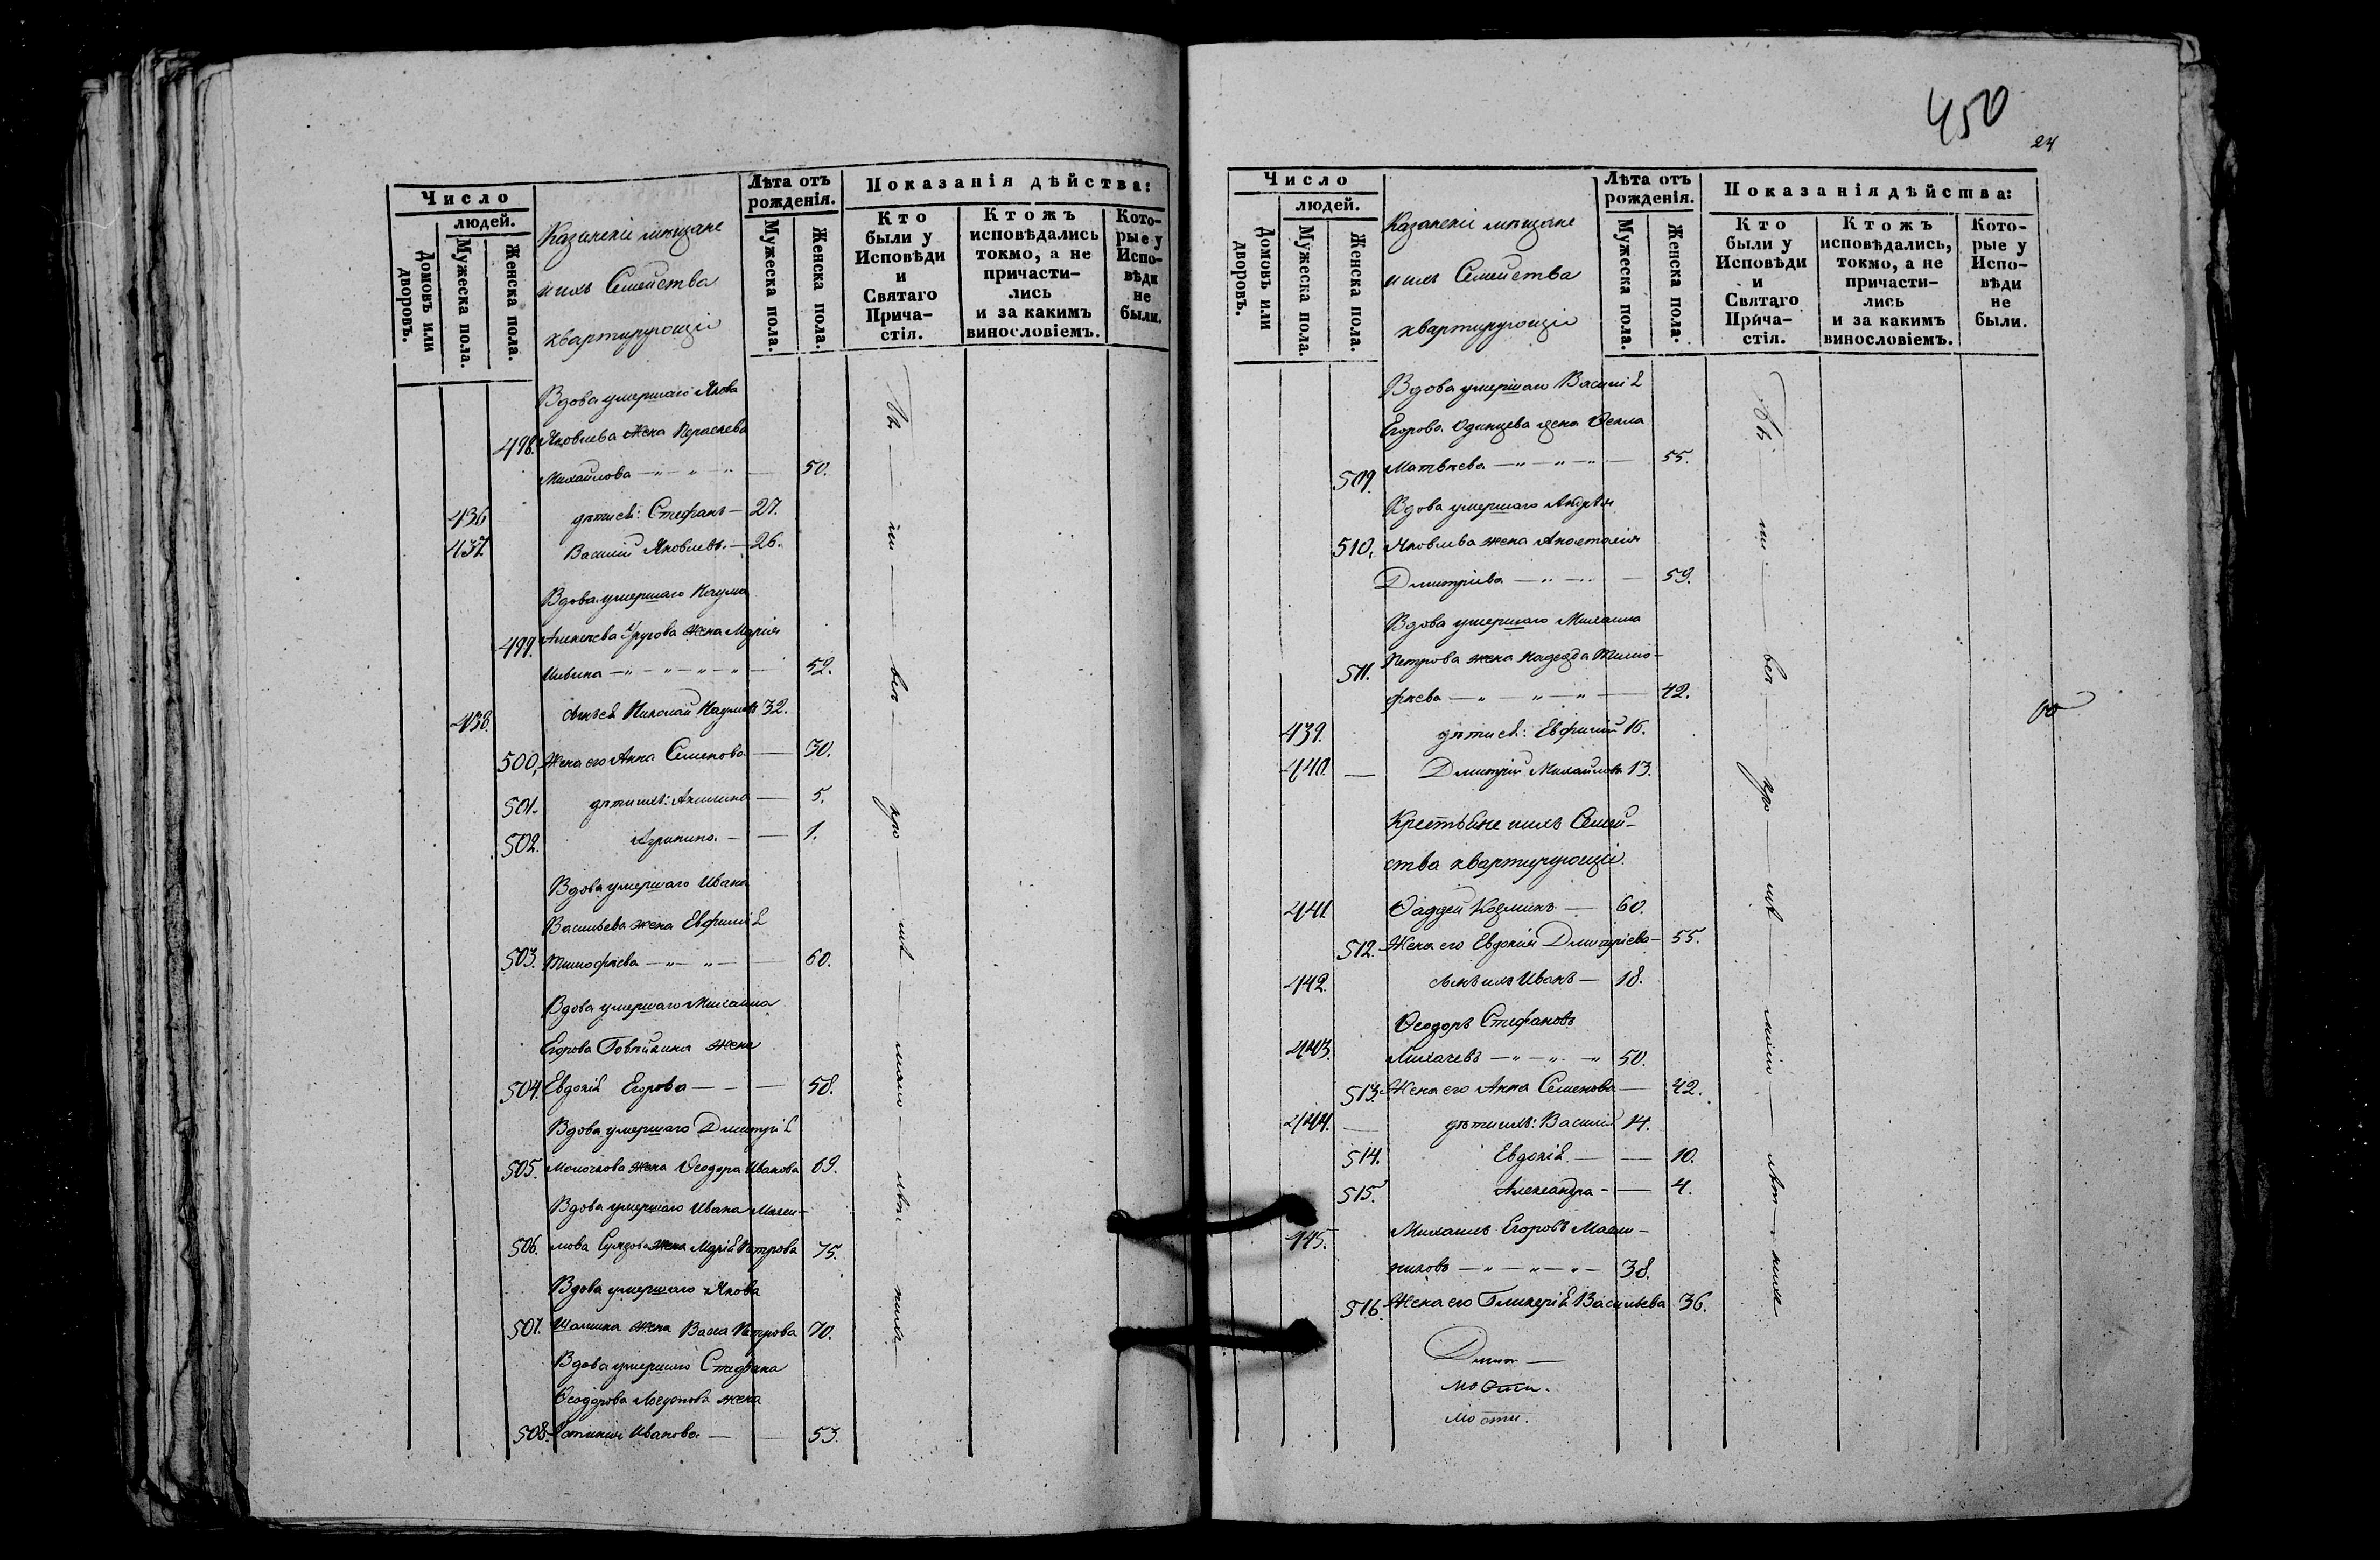 Число
людей.
Домовъ или дворовъ.
Мужеска пола.
Женска пола.
Казанскіе мѣщане
и ихъ Семейства
квартирующіе
Лѣта отъ
рожденія.
Мужеска пола.
Женска пола.
Показанія дѣйства:
Кто
были у
Исповѣди
и
Святаго
Прича-
стія.
Ктожъ
исповѣдались
токмо, а не
причасти-
лись
и за какимъ
винословіемъ.
Кото-
рые у
Испо-
вѣди
не
были.
Вдова умершаго Якова
498. Яковлева жена Параскева
Михайлова — 50.
436 дѣти ея: Стефанъ — 27.
437 Василій Яковлевъ. — 26.
Вдова умершаго Наума
499. Алексѣева жена Марія
Ильина — 52.
438. сынъ ея Николай Наумовъ 32.
500. Жена его Анна Семенова — 30.
501. дѣти ихъ: Акилина — 5.
502. Агрипина — 1.
Вдова умершаго Ивана
Васильева жена Евфимія
503. Тимофѣева — 60.
Вдова умершаго Михаила
Егорова жена
504. Евдокія Егорова — 58.
Вдова умершаго Дмитрія
505. Молочкова жена Ѳеодора Иванова 69.
Вдова умершаго Ивана Макси-
506. мова жена Марія Петрова 75.
Вдова умершаго Якова
507. жена Васса Петрова 70.
Вдова умершаго Стефана
Ѳеодорова жена
508. Фотинія Иванова — 53.
450
24
Число
людей.
Домовъ или дворовъ.
Мужеска пола.
Женска пола.
Казанскіе мѣщане
и ихъ Семейства
квартирующіе
Лѣта отъ
рожденія.
Мужеска пола.
Женска пола.
Показанія дѣйства:
Кто
были у
Исповѣди
и
Святаго
Прича-
стія.
Ктожъ
исповѣдались,
токмо, а не
причасти-
лись
и за какимъ
винословіемъ.
Кото-
рые у
Испо-
вѣди
не
были.
Вдова умершаго Василія
Егорова Одинцева жена Ѳекла
509. Матвѣева — 55.
Вдова умершаго Андрея
510. Яковлева жена Анастасія
Дмитріева — 59.
Вдова умершаго Михаила
511. Петрова жена Надежда Тимо-
фѣева — 42.
439. дѣти ея: Евфимій 16.
440. — Дмитрій Михайловы 13.
Крестьяне и ихъ Семей-
ства квартирующіе.
441 Ѳаддей Козминъ — 60.
512. Жена его Евдокія Дмитріева — 55.
442. сынъ ихъ Иванъ — 18.
Ѳеодоръ Стефановъ
443. Лихачевъ — 50.
513. Жена его Анна Семенова — 42.
444. дѣти ихъ: Василій 14.
514. Евдокія — 10.
515. Александра — 4.
445. Михаилъ Егоровъ Масл-
никовъ — 38.
516. Жена его Гликерія Васильева 36.